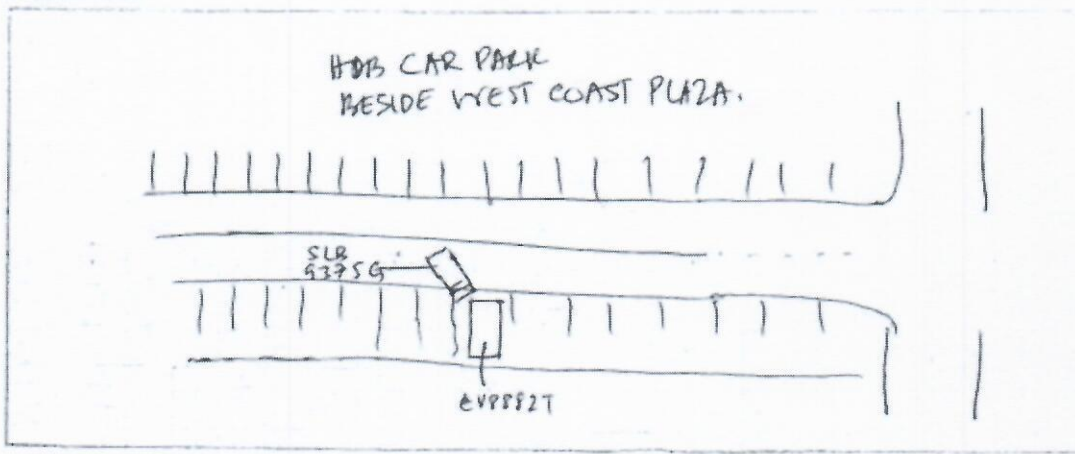 HDB CAR PARK
BESIDE WEST COAST PLAZA.
SLR
9375G